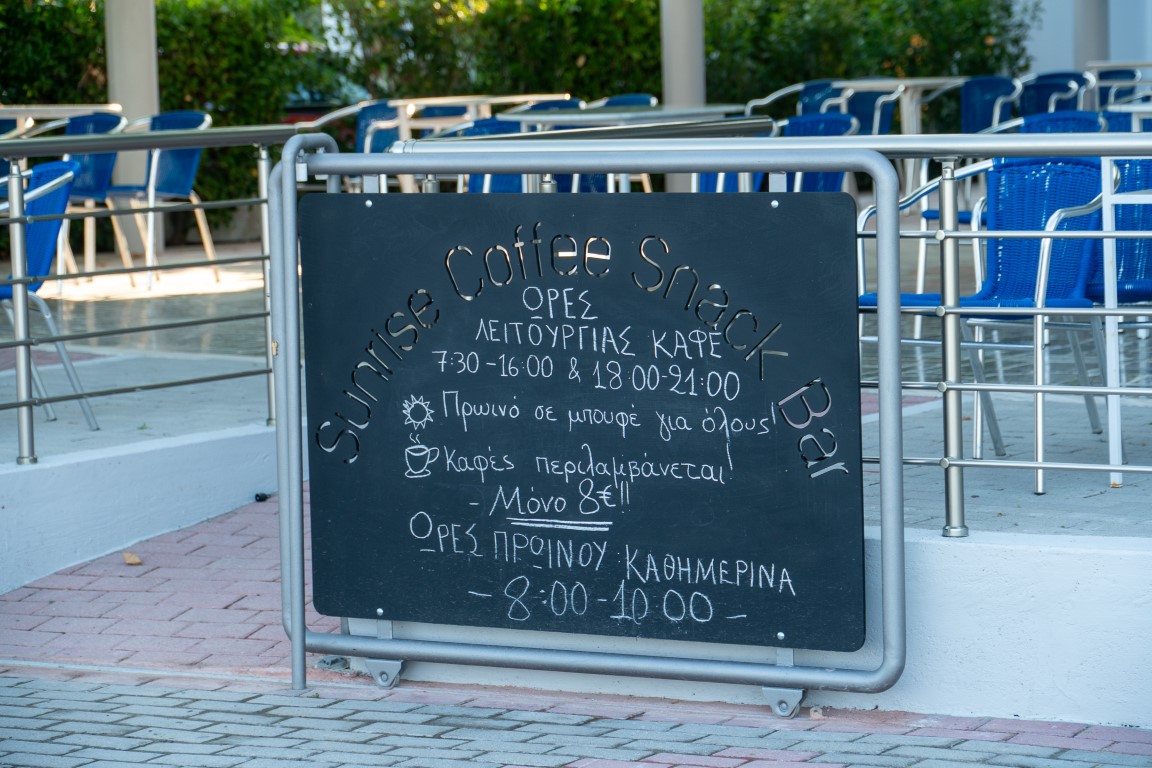 Sunrise Coffee Snack Bar
ΩΡΕΣ
ΛΕΙΤΟΥΡΓΙΑΣ ΚΑΦΕ
7:30-16:00 & 18:00-21:00
Πρωινό σε μπουφέ για όλους!
Καφές περιλαμβάνεται!
- Μόνο 8€!!
ΩΡΕΣ ΠΡΩΙΝΟΥ ΚΑΘΗΜΕΡΙΝΑ
- 8:00-10:00 -